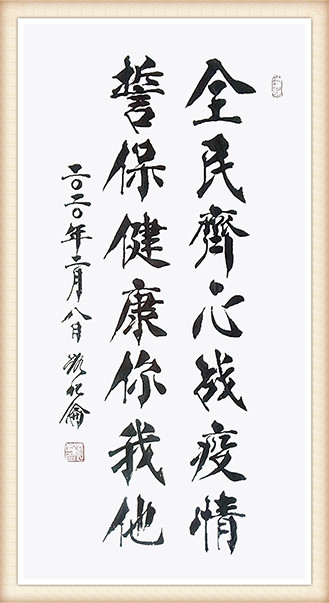 全民齊心战疫情
誓保健康你我他
二〇二〇年二月八日